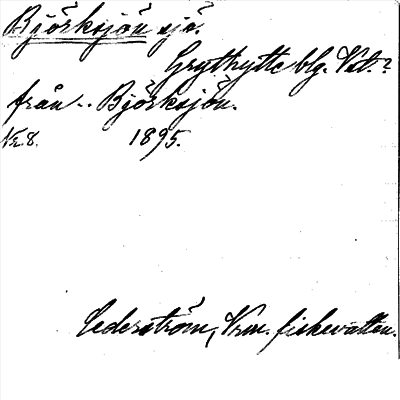 Björksjön sjö.
Grythytte blg. Vstl.?
från .. Björksjön.
Nr. 8. 1895.
Cederström, Vrm. fiskevatten.